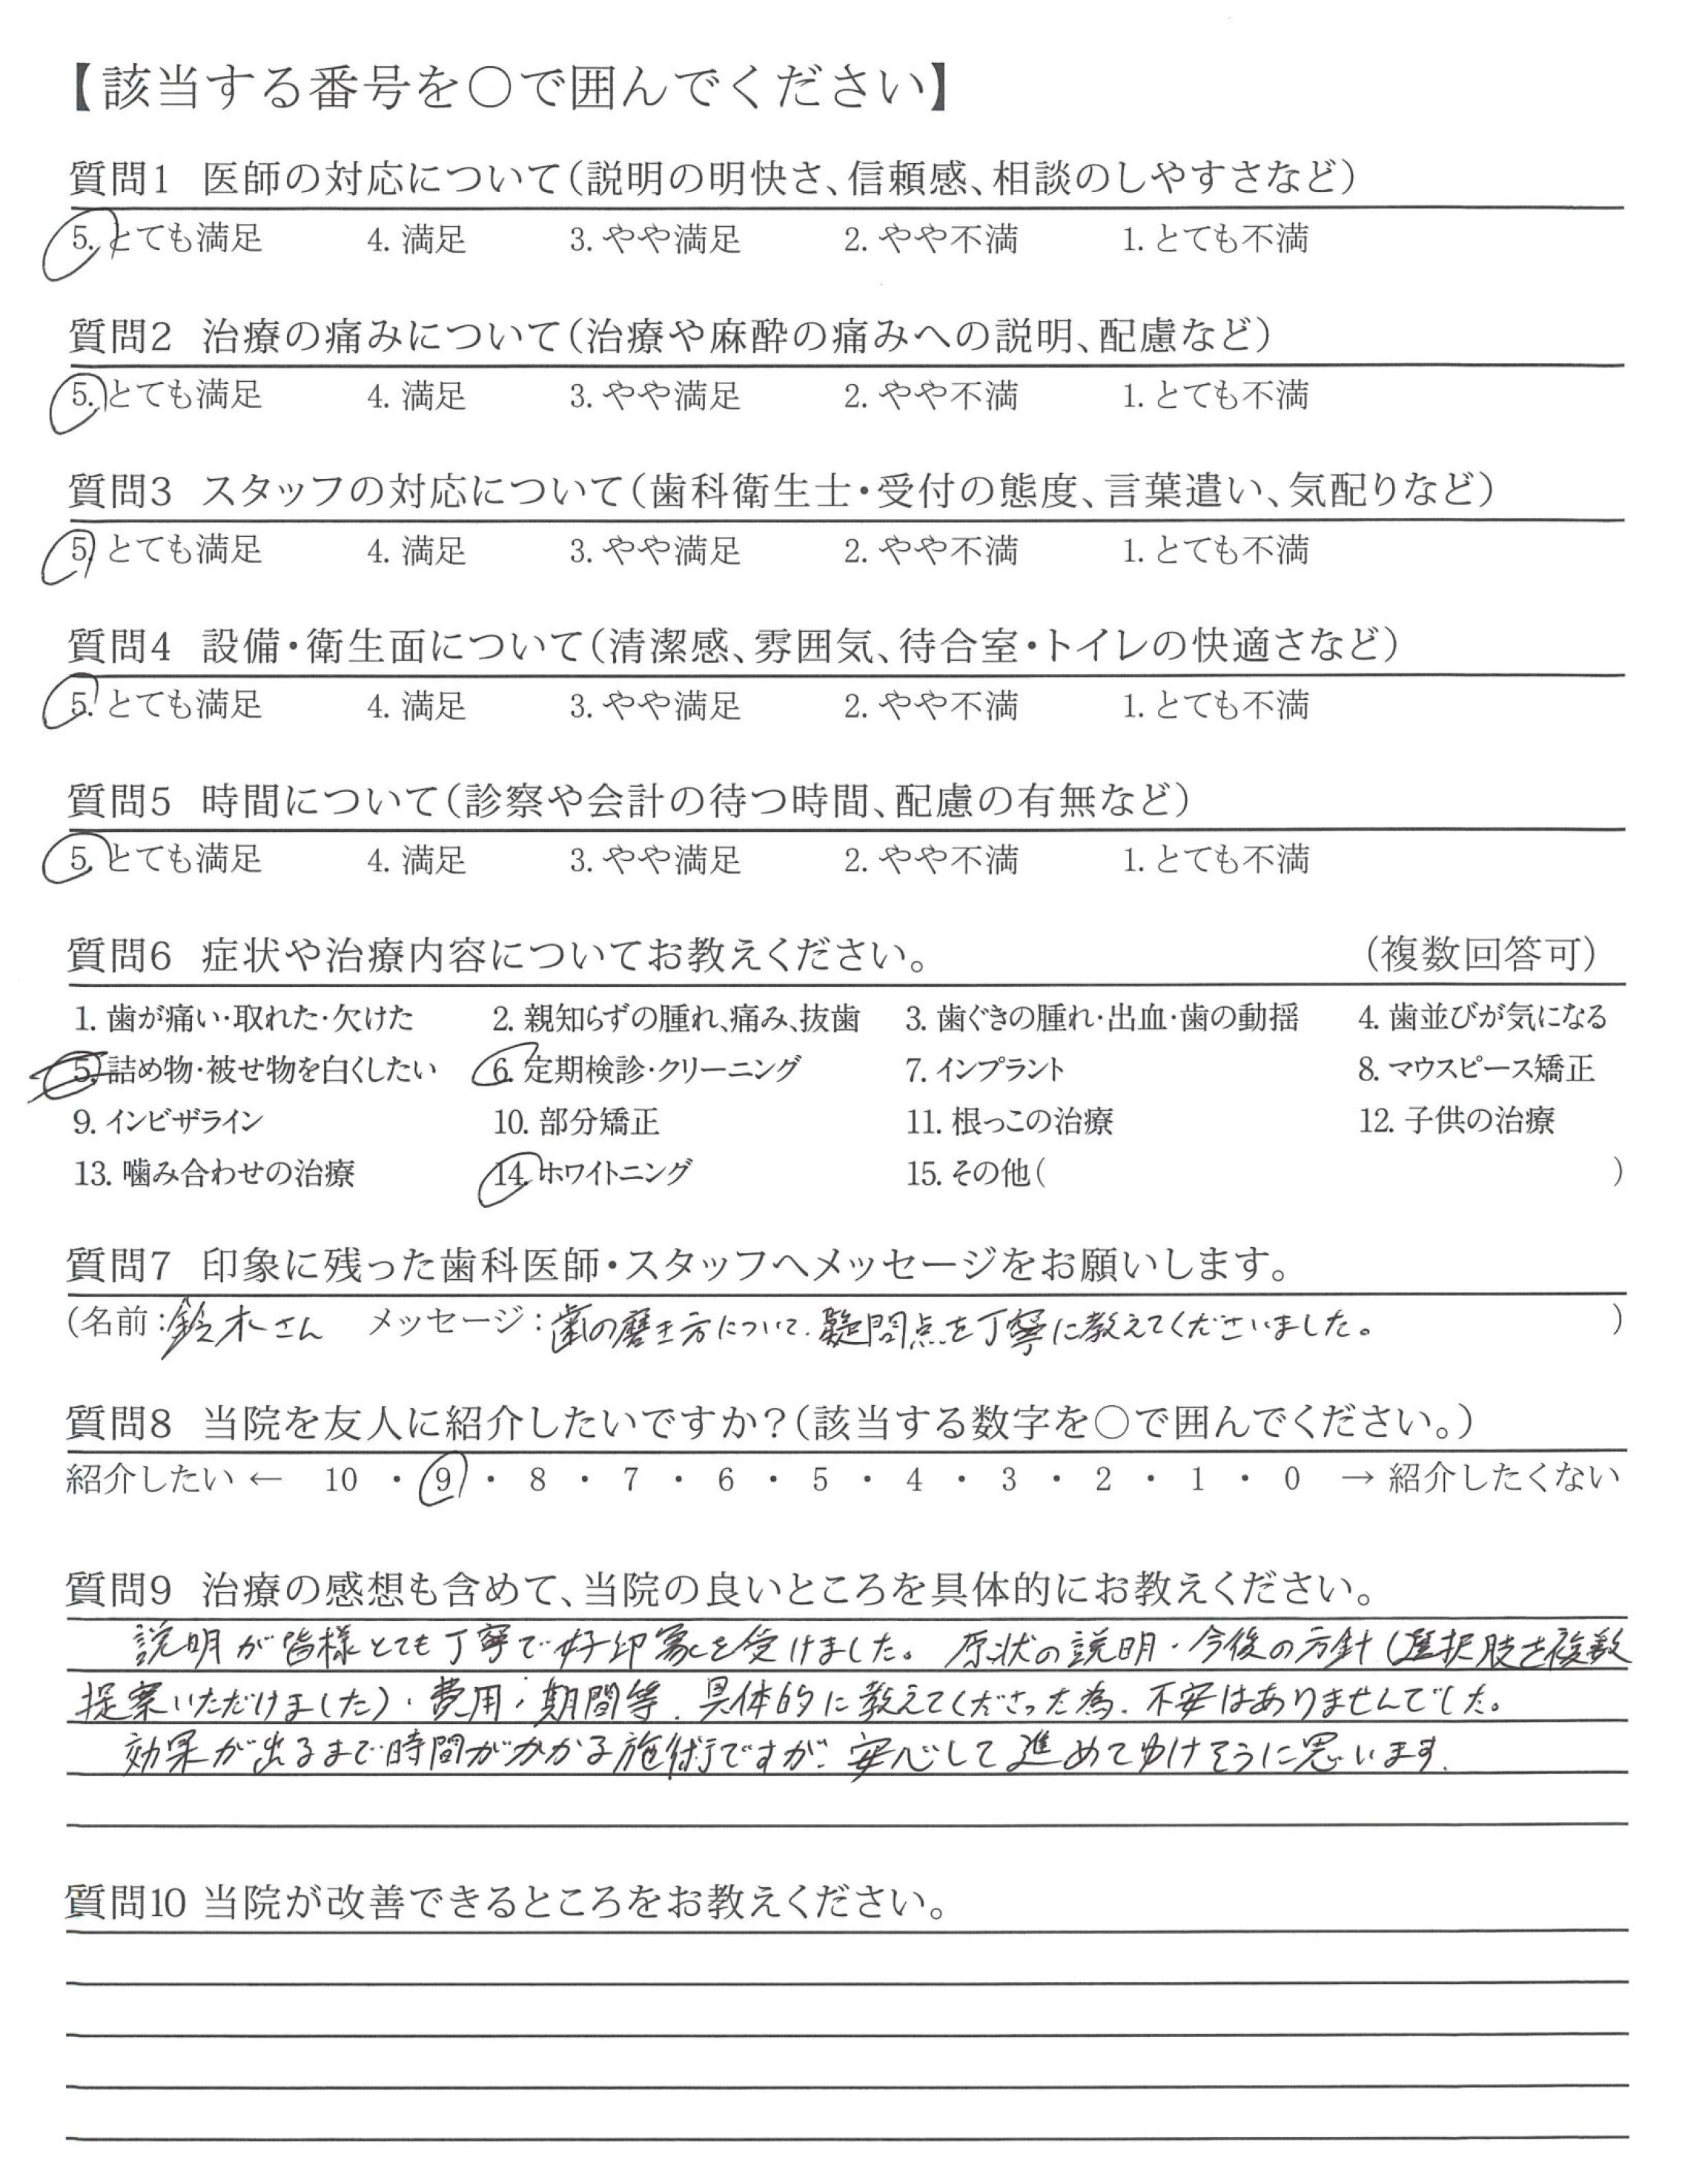 【該当する番号を○で囲んでください】
質問1 医師の対応について(説明の明快さ、信頼感、相談のしやすさなど)
5. とても満足 4. 満足 3. やや満足 2. やや不満 1. とても不満
質問2 治療の痛みについて(治療や麻酔の痛みへの説明、配慮など)
5. とても満足 4. 満足 3. やや満足 2. やや不満 1. とても不満
質問3 スタッフの対応について(歯科衛生士・受付の態度、言葉遣い、気配りなど)
5. とても満足 4. 満足 3. やや満足 2. やや不満 1. とても不満
質問4 設備・衛生面について(清潔感、雰囲気、待合室・トイレの快適さなど)
5. とても満足 4. 満足 3. やや満足 2. やや不満 1. とても不満
質問5 時間について(診察や会計の待つ時間、配慮の有無など)
5. とても満足 4. 満足 3. やや満足 2. やや不満 1. とても不満
質問6 症状や治療内容についてお教えください。 (複数回答可)
1. 歯が痛い・取れた・欠けた 2. 親知らずの腫れ、痛み、抜歯 3. 歯ぐきの腫れ・出血・歯の動揺 4. 歯並びが気になる
5. 詰め物・被せ物を白くしたい 6. 定期検診・クリーニング 7. インプラント 8. マウスピース矯正
9. インビザライン 10. 部分矯正 11. 根っこの治療 12. 子供の治療
13. 噛み合わせの治療 14. ホワイトニング 15. その他( )
質問7 印象に残った歯科医師・スタッフへメッセージをお願いします。
(名前:鈴木さん メッセージ:歯の磨き方について、疑問点を丁寧に教えてくださいました。 )
質問8 当院を友人に紹介したいですか?(該当する数字を○で囲んでください。)
紹介したい ← 10 ・ 9 ・ 8 ・ 7 ・ 6 ・ 5 ・ 4 ・ 3 ・ 2 ・ 1 ・ 0 → 紹介したくない
質問9 治療の感想も含めて、当院の良いところを具体的にお教えください。
説明が皆様とても丁寧で好印象を受けました。原状の説明・今後の方針(選択肢を複数
提案いただけました)・費用・期間等、具体的に教えてくださった為、不安はありませんでした。
効果が出るまで時間がかかる施術ですが、安心して進めてゆけそうに思います。
質問10 当院が改善できるところをお教えください。